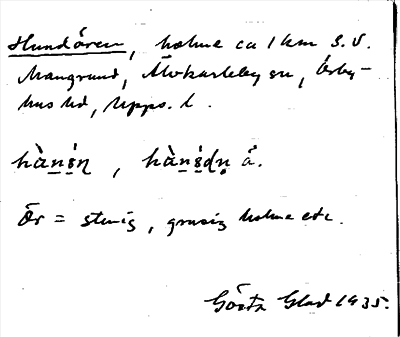 Hundören, holme ca 1 km S.V.
Mangrund, Älvkarleby sn, Örby-
hus hd, Upps. l.
hànsņ, hànsdņ å.
Ör = stenig, grusig holme etc.
Gösta Glad 1935.